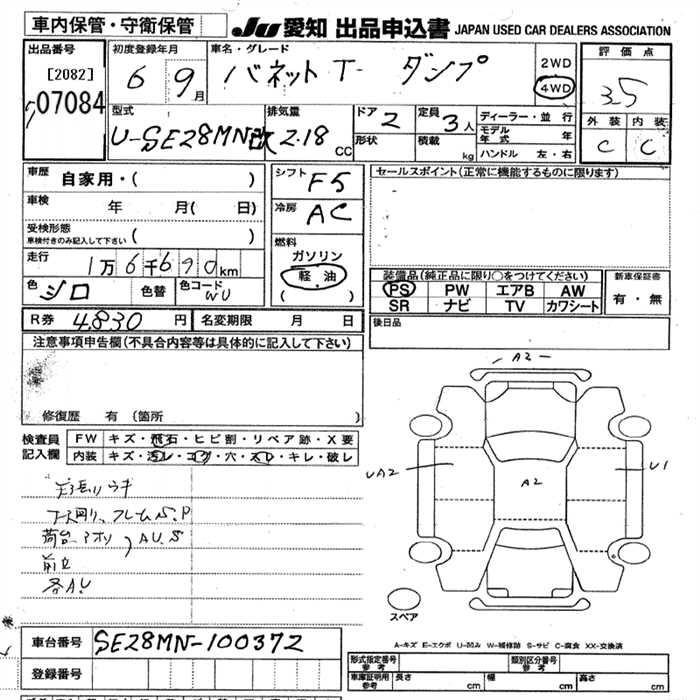 車内保管・守衛保管 JU 愛知 出品申込書 JAPAN USED CAR DEALERS ASSOCIATION
出品番号 初度登録年月 車名・グレード 評価点
[2082] 6 9月 バネットT- ダンプ 2WD 4WD 35
07084
型式 排気量 ドア 2 定員 3人 ディーラー・並行 外装 内装
U-SE28MN改 2.18 CC 形状 積載 kg モデル年式 年 C C
ハンドル 左・右
車歴 自家用・( ) シフト F5 セールスポイント(正常に機能するものに限ります)
車検 年 月(日) 冷房 AC
受検形態
車検付きのみ記入して下さい ( ) 燃料
走行 1万6千690km ガソリン
軽油 装備品(純正品に限り○をつけてください) 新車保証書
色 シロ 色替 色コード WU ( ) PS PW エアB AW 有・無
SR ナビ TV カワシート
R券 4,830円 名変期限 月 日 後日品
注意事項申告欄(不具合内容等は具体的に記入して下さい)
A2
修復歴 有 (箇所 )
検査員 FW キズ・飛石・ヒビ割・リペア跡・X要
記入欄 内装 キズ・汚レ・コゲ・穴・スレ・キレ・破レ
UA2 A2 U1
フレームS.P
荷台 アオリ AU.S
各AU
スペア
A-キズ E-エクボ U-凹み W-補修跡 S-サビ C-腐食 XX-交換済
車台番号 SE28MN-100372
登録番号 形式指定番号 参考 類別区分番号 参考
車庫証明用 参考 長さ cm 幅 cm 高さ cm